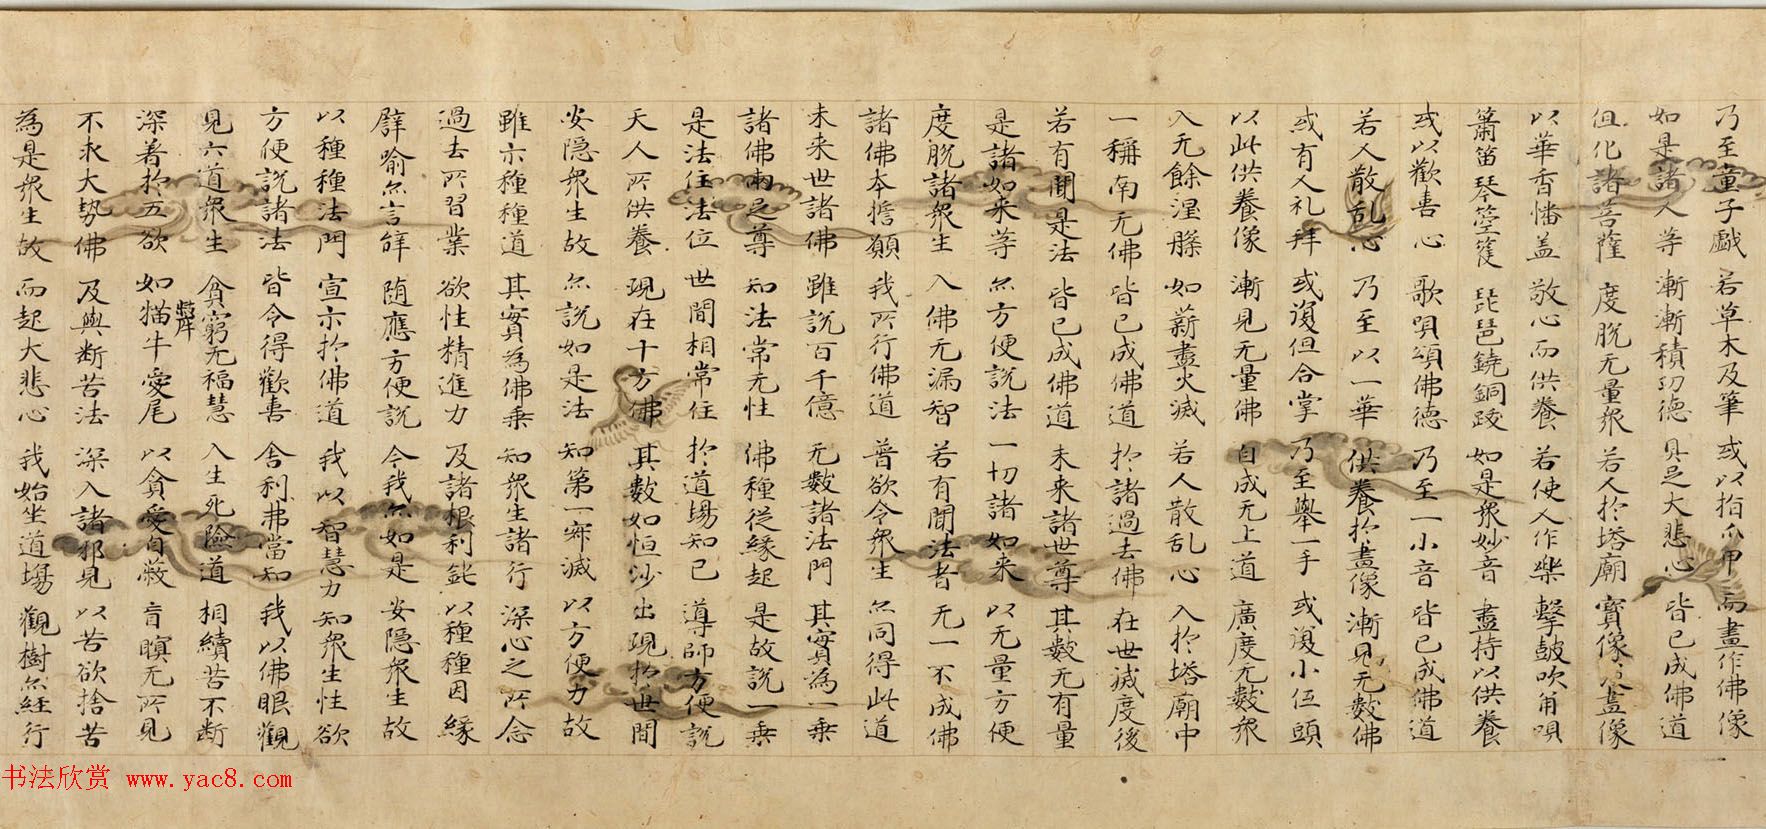 乃至童子戲 若草木及筆 或以指爪甲 而畫作佛像
如是諸人等 漸漸積功德 具足大悲心 皆已成佛道
但化諸菩薩 度脫无量眾 若人於塔廟 寶像及畫像
以華香幡盖 敬心而供養 若使人作樂 擊皷吹角唄
簫笛琴箜篌 琵琶鐃銅鈸 如是眾妙音 盡持以供養
或以歡喜心 歌唄頌佛德 乃至一小音 皆已成佛道
若人散乱心 乃至以一華 供養於畫像 漸見无數佛
或有人礼拜 或復但合掌 乃至舉一手 或復小伍頭
以此供養像 漸見无量佛 自成无上道 廣度无數眾
入无餘涅槃 如薪盡火滅 若人散乱心 入於塔廟中
一稱南无佛 皆已成佛道 於諸過去佛 在世滅度後
若有聞是法 皆已成佛道 未来諸世尊 其數无有量
是諸如来等 亦方便說法 一切諸如来 以无量方便
度脫諸眾生 入佛无漏智 若有聞法者 无一不成佛
諸佛本擔願 我所行佛道 普欲令眾生 亦同得此道
未来世諸佛 雖說百千億 无數諸法門 其實為一乗
諸佛兩足尊 知法常无性 佛種從緣起 是故說一乗
是法住法位 世間相常住 於道場知已 導師方便說
天人所供養 現在十方佛 其數如恒沙 出現於世間
安隐眾生故 亦說如是法 知第一寂滅 以方便力故
雖示種種道 其實為佛乗 知眾生諸行 深心之所念
過去所習業 欲性精進力 及諸根利鈍 以種種因緣
譬喻亦言辝 随應方便說 今我亦如是 安隐眾生故
以種種法門 宣示於佛道 我以智慧力 知眾生性欲
方便說諸法 皆令得歡喜 舍利弗當知 我以佛眼觀
見六道眾生 貪窮无福慧 入生死險道 相續苦不断
深著於五欲 如猫牛愛尾 以貪愛自蔽 盲瞑无所見
不求大势佛 及與断苦法 深入諸邪見 以苦欲捨苦
為是眾生故 而起大悲心 我始坐道場 觀樹亦経行
书法欣赏 www.yac8.com